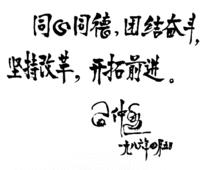 同心同德，团结奋斗，
坚持改革，开拓前进。